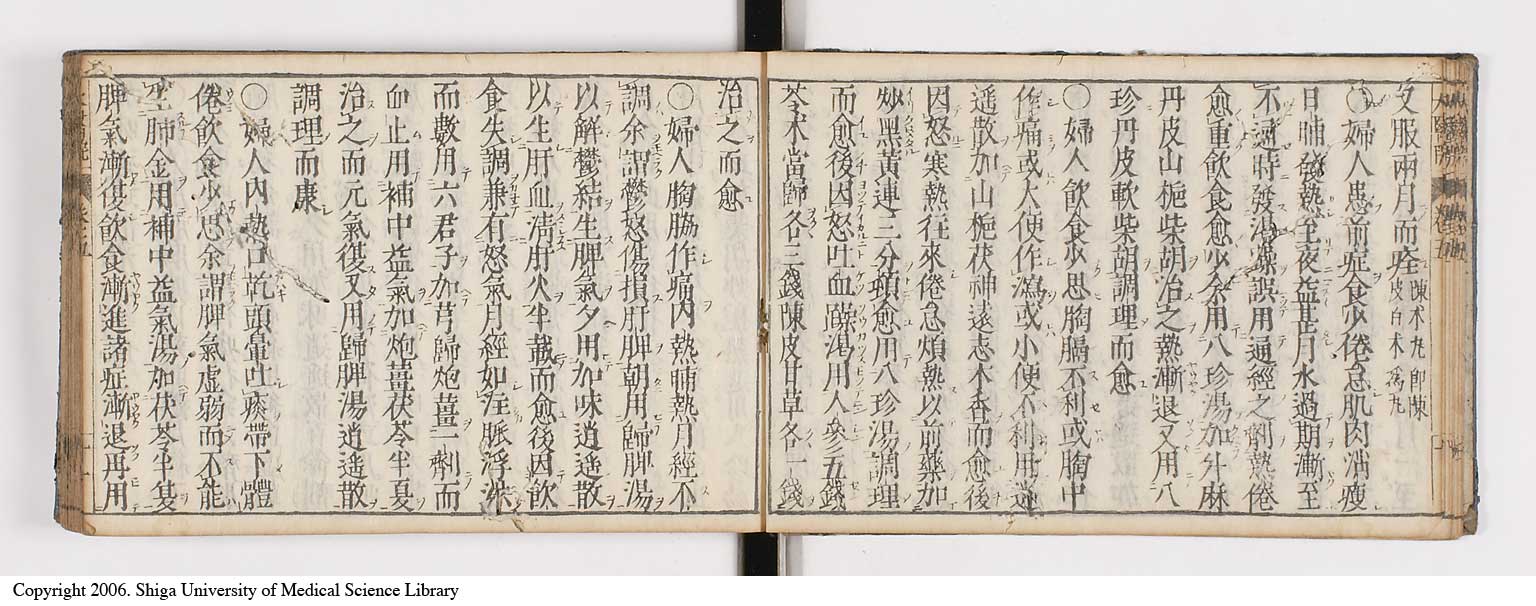 又服兩月而痊 陳朮丸即陳
皮白朮爲丸
〇婦人患前症食少倦怠肌肉消瘦
日晡發熱至夜益甚月水過期漸至
不通時發渴躁誤用通經之劑熱倦
愈重飲食愈少余用八珍湯加升麻
丹皮山梔柴胡治之熱漸退又用八
珍丹皮軟柴胡調理而愈
〇婦人飲食少思胸膈不利或胸中
作痛或大便作瀉或小便不利用逍
遥散加山梔茯神遠志木香而愈後
因怒寒熱往來倦怠煩熱以前藥加
炒黑黃連三分頓愈用八珍湯調理
而愈後因怒吐血躁渴用人參五錢
苓朮當歸各三錢陳皮甘草各一錢
治之而愈
〇婦人胸脇作痛内熱晡熱月經不
調余謂鬱怒傷損肝脾朝用歸脾湯
以解鬱結生脾氣夕用加味逍遥散
以生肝血淸肝火半載而愈後因飲
食失調兼有怒氣月經如注脈浮洪
而數用六君子加芎歸炮薑一劑而
血止用補中益氣加炮薑茯苓半夏
治之而元氣復又用歸脾湯逍遥散
調理而康
〇婦人内熱口乾頭暈吐痰帶下體
倦飲食少思余謂脾氣虚弱而不能
生肺金用補中益氣湯加茯苓半夏
脾氣漸復飲食漸進諸症漸退再用
Copyright 2006. Shiga University of Medical Science Library